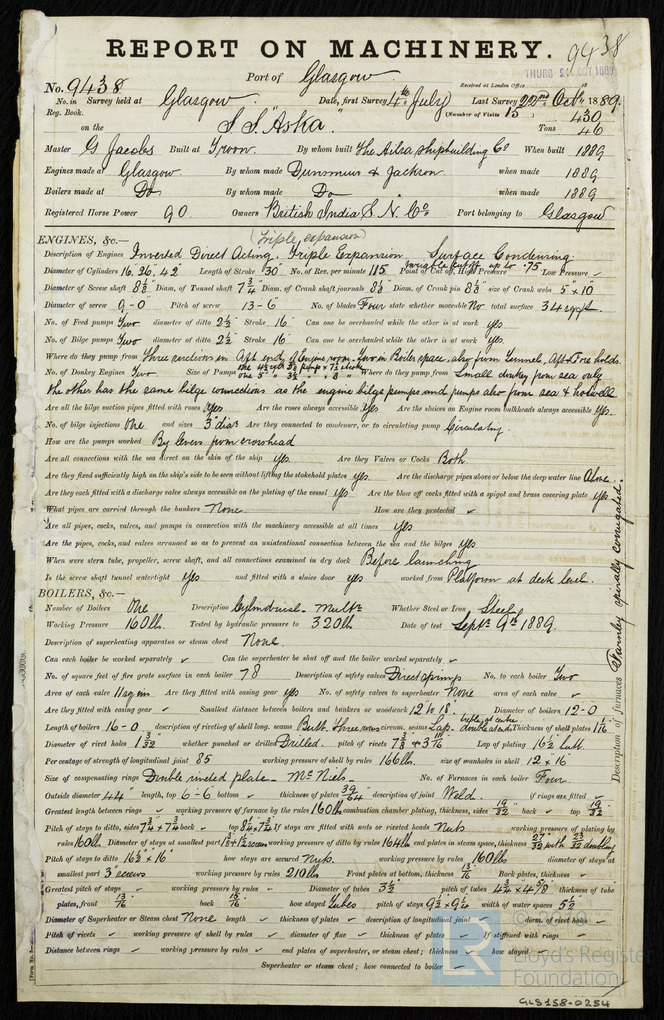 REPORT ON MACHINERY. 9438
THURS 24 OCT 1889
Port of Glasgow
Received at London Office
No. 9438
No. in Survey held at Glasgow Date, first Survey 4th July Last Survey 22nd Octr 1889.
Reg. Book. (Number of Visits 15) 430
on the S S "Aska" Tons 46
Master G Jacobs Built at Troon. By whom built The Ailsa Shipbuilding Co When built 1889
Engines made at Glasgow By whom made Dunsmuir & Jackson when made 1889.
Boilers made at Do. By whom made Do when made 1889
Registered Horse Power 90 Owners British India S. N. Co. Port belonging to Glasgow
ENGINES, &c.— (Triple expansion)
Description of Engines Inverted Direct Acting. Triple Expansion. Surface Condensing.
Diameter of Cylinders 16, 26, 42 Length of Stroke 30" No. of Rev. per minute 115 Point of Cut off, High Pressure variable cut off up to .75 Low Pressure ✓
Diameter of Screw shaft 8⅛ Diam. of Tunnel shaft 7¾ Diam. of Crank shaft journals 8⅛ Diam. of Crank pin 8⅛ size of Crank webs 5" × 10"
Diameter of screw 9-0" Pitch of screw 13-6" No. of blades Four state whether moveable No total surface 34 sq ft.
No. of Feed pumps Two diameter of ditto 2½" Stroke 16" Can one be overhauled while the other is at work yes
No. of Bilge pumps Two diameter of ditto 2½" Stroke 16" Can one be overhauled while the other is at work yes
Where do they pump from Three suctions in Aft end of Engine room, Two in Boiler space, also from Tunnel, Aft & Fore holds.
No. of Donkey Engines Two Size of Pumps Where do they pump from Small donkey from sea only
the other has the same bilge connections as the engine bilge pumps and pumps also from sea & hotwell
Are all the bilge suction pipes fitted with roses yes Are the roses always accessible yes Are the sluices on Engine room bulkheads always accessible yes.
No. of bilge injections One and sizes 3" dia. Are they connected to condenser, or to circulating pump Circulating.
How are the pumps worked By levers from crosshead
Are all connections with the sea direct on the skin of the ship yes Are they Valves or Cocks Both.
Are they fixed sufficiently high on the ship's side to be seen without lifting the stokehold plates yes Are the discharge pipes above or below the deep water line Above.
Are they each fitted with a discharge valve always accessible on the plating of the vessel yes Are the blow off cocks fitted with a spigot and brass covering plate yes.
What pipes are carried through the bunkers None. How are they protected ✓
Are all pipes, cocks, valves, and pumps in connection with the machinery accessible at all times yes
Are the pipes, cocks, and valves arranged so as to prevent an unintentional connection between the sea and the bilges yes
When were stern tube, propeller, screw shaft, and all connections examined in dry dock Before launching
Is the screw shaft tunnel watertight yes and fitted with a sluice door yes worked from Platform at deck level.
BOILERS, &c.—
Number of Boilers One Description Whether Steel or Iron Steel
Working Pressure 160 lb. Tested by hydraulic pressure to 320 lb Date of test Septr. 9th 1889.
Description of superheating apparatus or steam chest None.
Can each boiler be worked separately ✓ Can the superheater be shut off and the boiler worked separately ✓
No. of square feet of fire grate surface in each boiler 78 Description of safety valves Direct spring No. to each boiler Two
Area of each valve 11 sq ins Are they fitted with easing gear yes No. of safety valves to superheater None area of each valve ✓
Are they fitted with easing gear ✓ Smallest distance between boilers and bunkers or woodwork 12 to 18" Diameter of boilers 12-0
Length of boilers 16-0 description of riveting of shell long. seams Butt. Three rows circum. seams Lap. Thickness of shell plates
Diameter of rivet holes 1 3/32 whether punched or drilled Drilled. pitch of rivets Lap of plating 16½ butt.
Percentage of strength of longitudinal joint 85 working pressure of shell by rules 166 lb. size of manholes in shell 12 × 16"
Size of compensating rings Double riveted plate — McNiels — No. of Furnaces in each boiler Four.
Outside diameter 44" length, top 6-6" bottom ✓ thickness of plates 39/64" description of joint Weld. if rings are fitted ✓
Greatest length between rings ✓ working pressure of furnace by the rules 160 lb combustion chamber plating, thickness, sides 19/32 back ✓ top 19/32
Pitch of stays to ditto, sides 7¾ × 7¾ back ✓ top If stays are fitted with nuts or riveted heads Nuts working pressure of plating by
rules 160 lb. Diameter of stays at smallest part working pressure of ditto by rules 164 lb end plates in steam space, thickness 27/32 with 23/32 doubling
Pitch of stays to ditto 16½ × 16" how stays are secured Nuts. working pressure by rules 160 lbs diameter of stays at
smallest part 3" screws working pressure by rules 210 lbs Front plates at bottom, thickness 13/16 Back plates, thickness ✓
Greatest pitch of stays ✓ working pressure by rules ✓ Diameter of tubes 3½ pitch of tubes 4¾ × 4⅝ thickness of tube
plates, front 13/16 back 13/16 how stayed tubes pitch of stays 9½ × 9¼ width of water spaces 5½
Diameter of Superheater or Steam chest None length ✓ thickness of plates ✓ description of longitudinal joint ✓ diam. of rivet holes ✓
Pitch of rivets ✓ working pressure of shell by rules ✓ diameter of flue ✓ thickness of plates ✓ If stiffened with rings ✓
Distance between rings ✓ working pressure by rules ✓ end plates of superheater, or steam chest; thickness ✓ how stayed ✓
Superheater or steam chest; how connected to boiler ✓
Description of furnaces Farnley spirally corrugated.
Lloyd's Register
Foundation
GLS158-0254